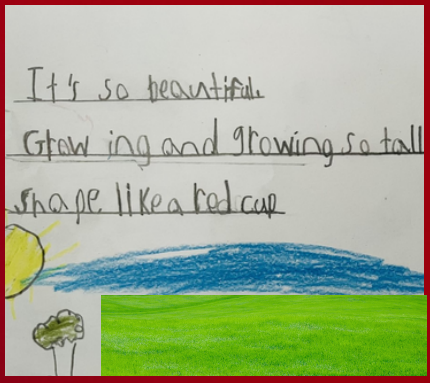 It's so beautiful.
Grow ing and growing so tall
shape like a red cup